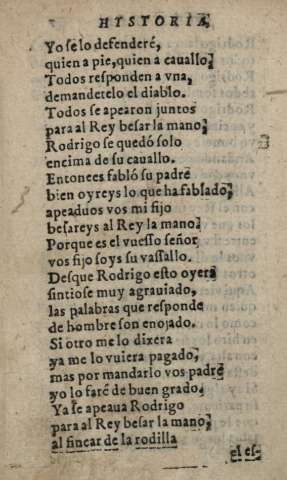 HYSTORIA,
Yo se lo defenderé,
quien a pie, quien a cauallo,
Todos responden a vna,
demandetelo el diablo.
Todos se apearon juntos
para al Rey besar la mano,
Rodrigo se quedó solo
encima de su cauallo.
Entonces fabló su padre
bien oyreys lo que ha fablado,
apeaduos vos mi fijo
besareys al Rey la mano,
Porque es el vuesso señor
vos fijo soys su vassallo.
Desque Rodrigo esto oyera
sintiose muy agrauiado,
las palabras que responde
de hombre son enojado.
Si otro me lo dixera
ya me lo vuiera pagado,
mas por mandarlo vos padre
yo lo faré de buen grado.
Ya se apeaua Rodrigo
para al Rey besar la mano,
al fincar de la rodilla
el es-